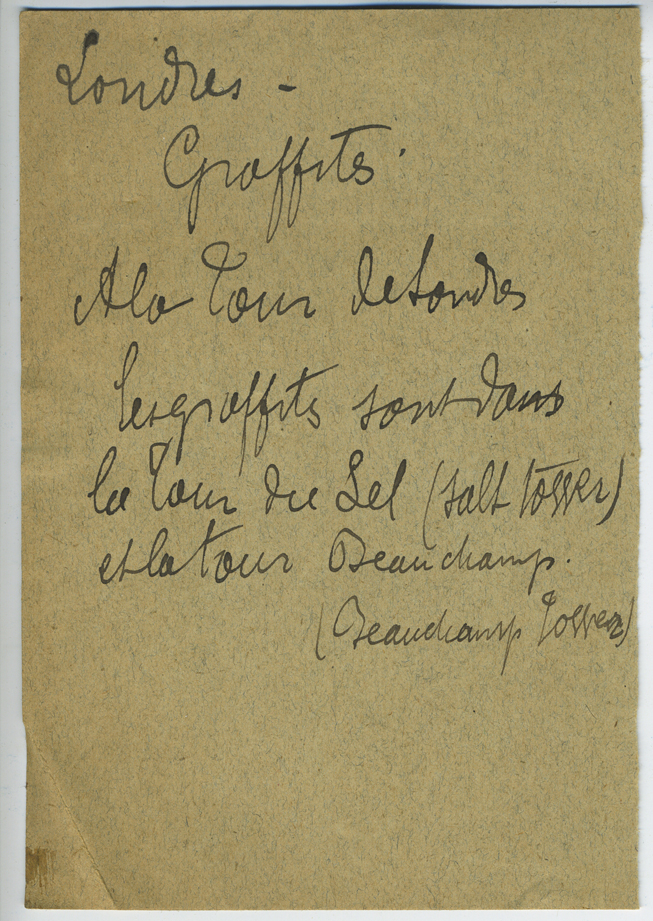 Londres -
Graffites.
A la Tour de Londres
les graffites sont dans
la Tour du Sel (salt tower)
et la tour Beauchamp.
(Beauchamp Tower)